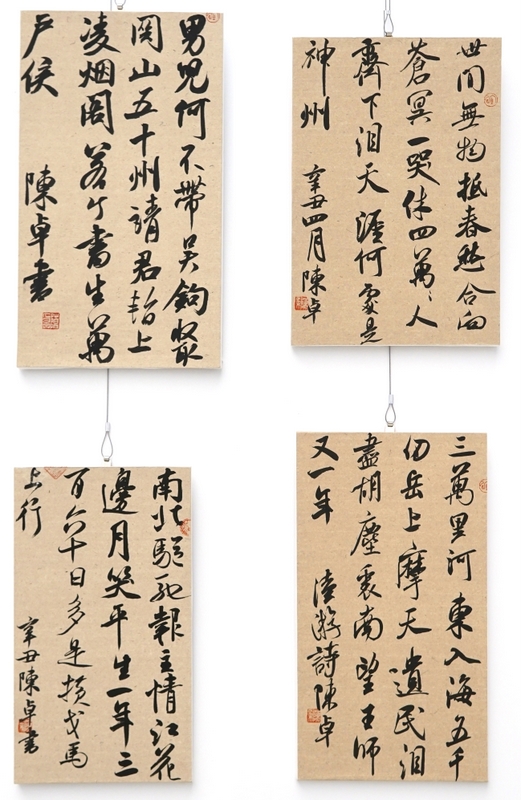 男兒何不帶吳鉤收取
関山五十州請君暫上
凌烟閣若个書生萬
户侯
陳卓書
世间無物抵春愁合向
蒼冥一哭休四萬々人
齊下泪天涯何處是
神州
辛丑四月陳卓
南北驅馳報主情江花
邊月笑平生一年三
百六十日多是橫戈馬
上行
辛丑陳卓書
三萬里河東入海五千
仞岳上摩天遺民泪
盡胡塵裏南望王師
又一年
陸游詩陳卓